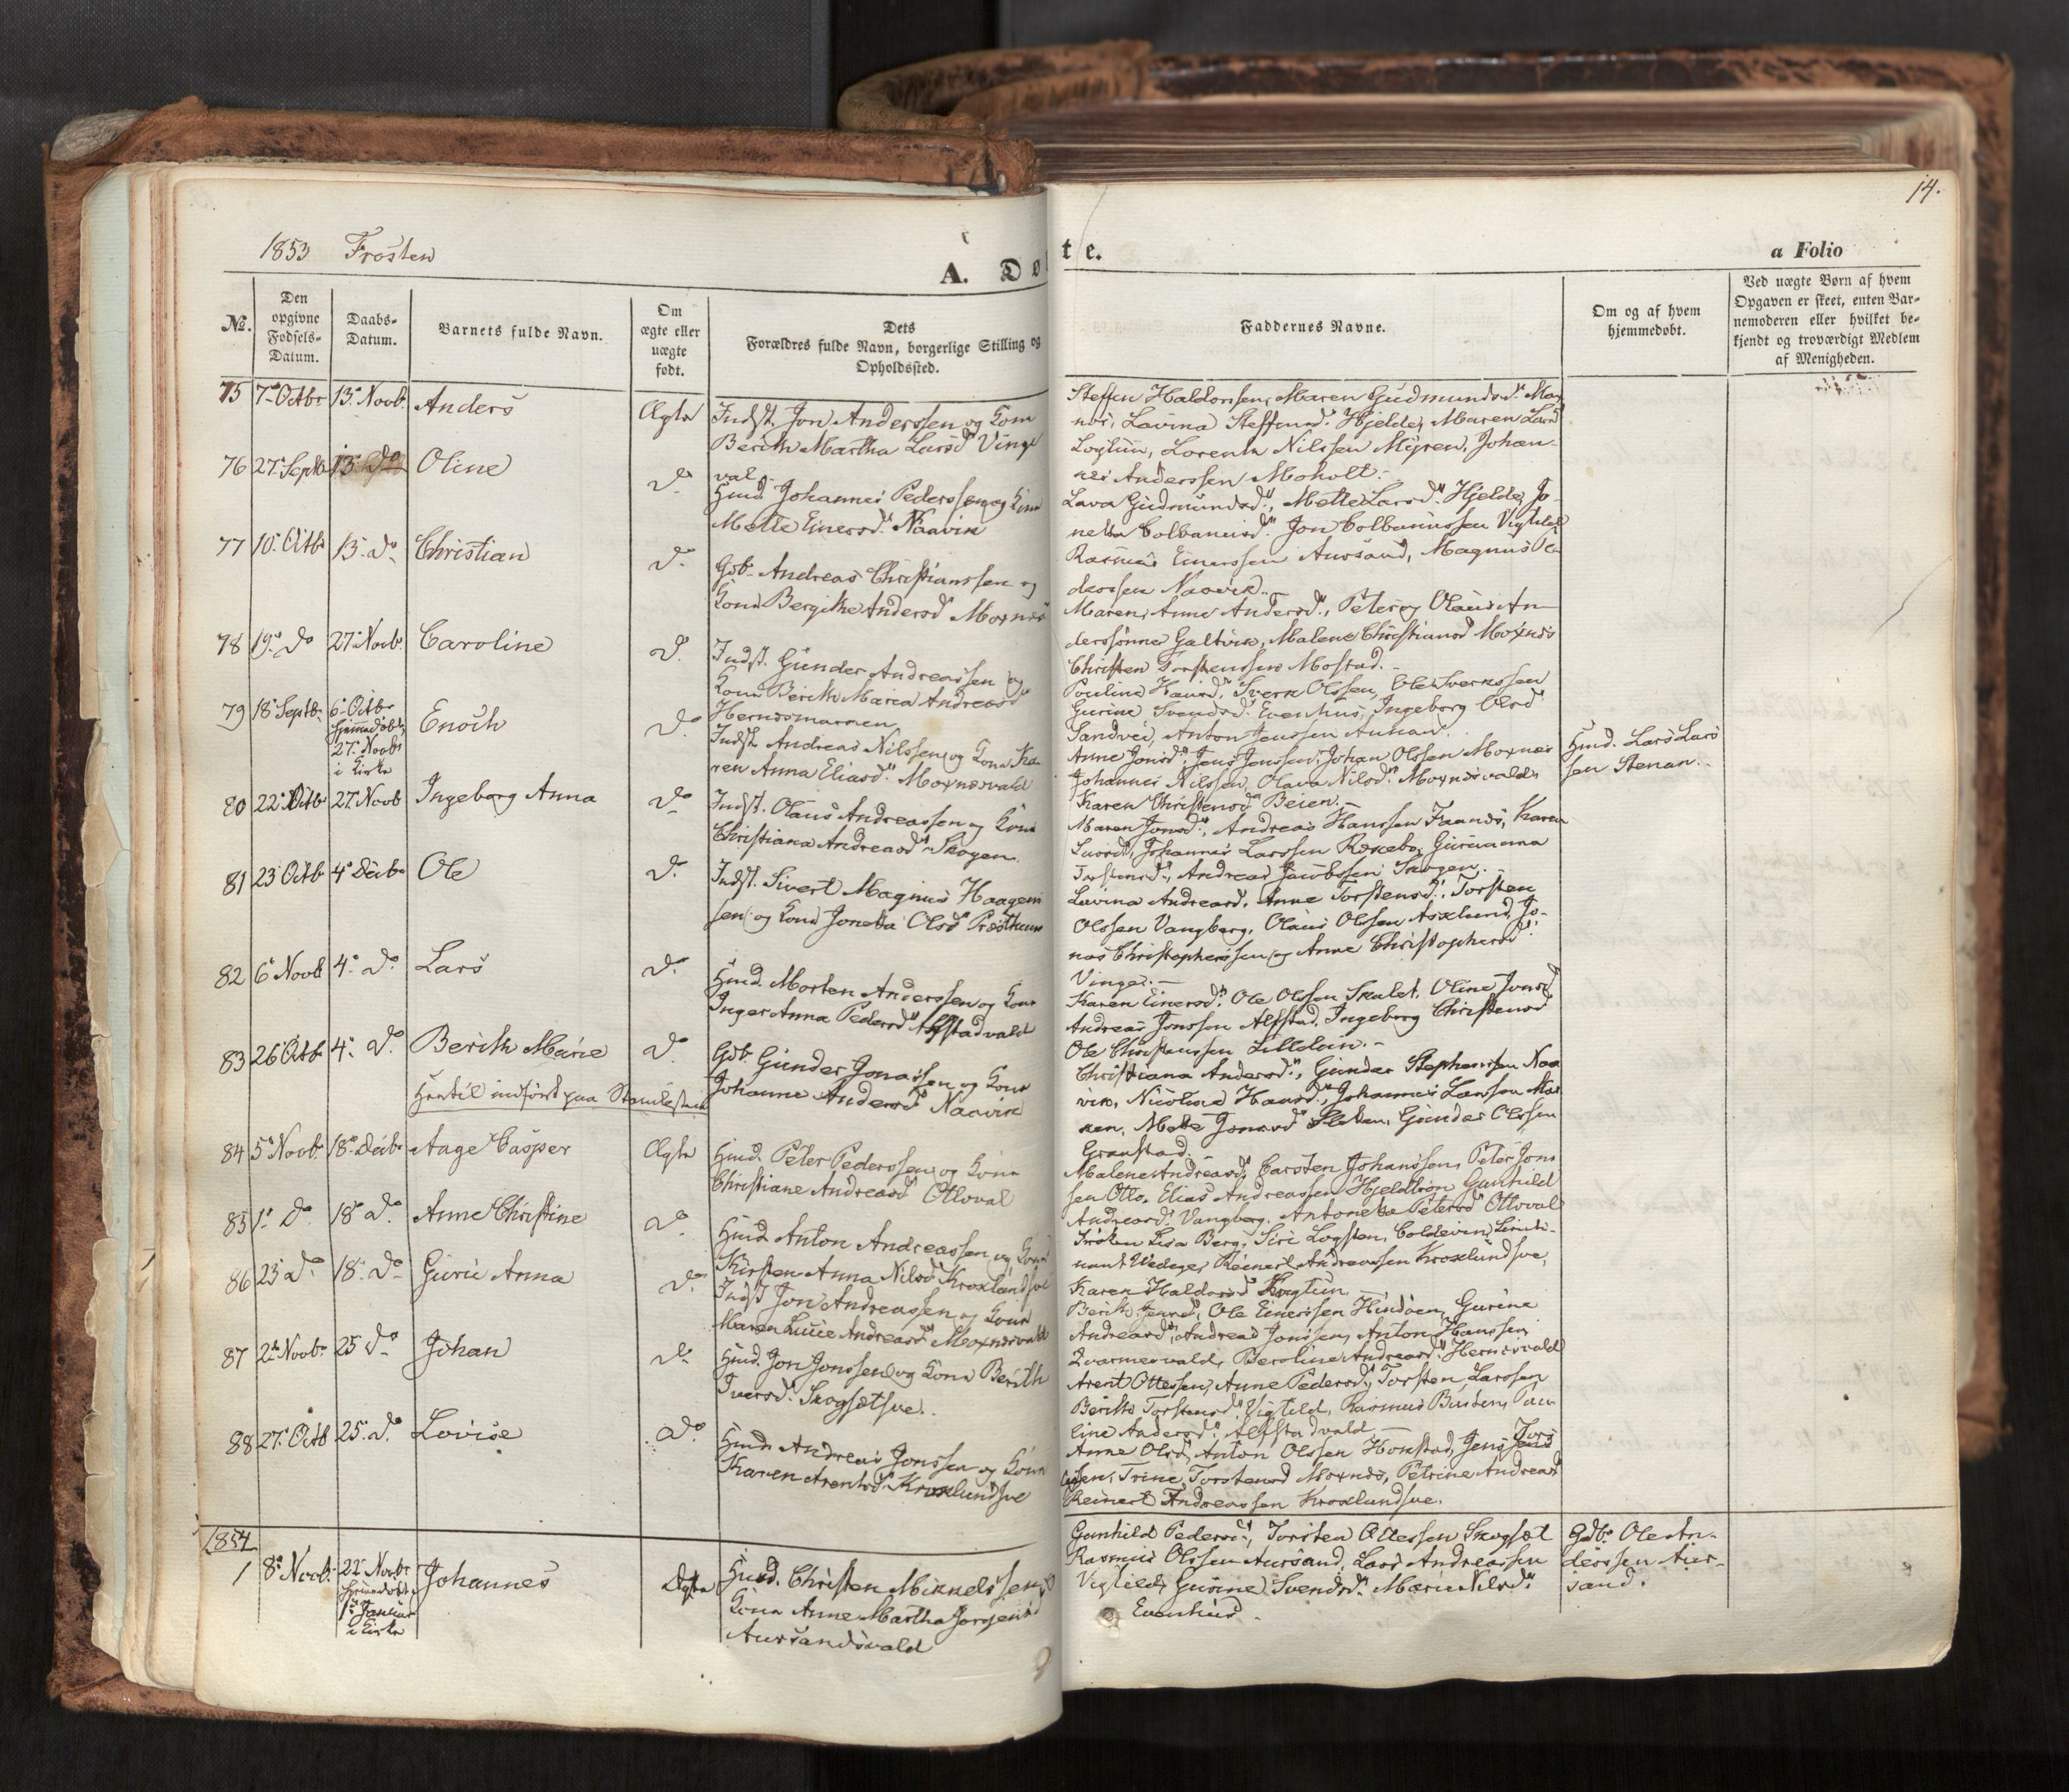 14.
1853 Frosten
A. Do
te.
a Folio
No.
Den opgivne Fødsels-Datum.
Daabs-Datum.
Barnets fulde Navn.
Om ægte eller uægte født.
Dets Forældres fulde Navn, borgerlige Stilling og Opholdssted.
Faddernes Navne.
Om og af hvem hjemmedøbt.
Ved uægte Børn af hvem Opgaven er skeet, enten Barnemoderen eller hvilket bekjendt og troværdigt Medlem af Menigheden.
75 7de Octbr 13de Novb. Anders Ægte Indst. Jon Anderssen og Kone
Berith Martha Larsdr Vinge
val
Steffen Haldorssen, Maren Gudmundsdr Mox
nes, Lavina Steffensdr Hjelde, Maren Larsd
Logtun, Lorents Nilssen Myren, Johan-
nes Anderssen Moholt.
76 27 Septbr 13 do Oline do Hmd. Johannes Pederssen og Kone
Mette Einersdr Naavik
Lava Gudmundsdr, Mette Larsdr Hjelde, Jo-
netta Colbanusdr Jon Colbanussen Vigtild
Rasmus Einerssen Aursand, Magnus Pe-
derssen Naavik.
77 10 Octbr 13 do Christian do Gdb. Andreas Christianssen og
Kone Bergitte Andersdr Moxnes
Maren, Anne Andersdr, Peter og Olaus An-
derssønner Galtvik, Malene Christiansdr Moxnes
Christen Torstenssen Mostad.
78 19 do 27 Novb. Caroline do Indst. Gunder Andreassen og
Kone Berith Maria Andreasdr
Hernesmarken
Pauline Hansdr, Sverk Olssen, Ole Sverkssen
Gurine Svendsdr Evenhus, Ingeborg Olsdr
Sandvei, Anton Jenssen Aunan.
79 18 Septbr 6 Octbr
hjemmedøbt,
27 Novbr
i Kirke
Enoch do Indst. Andreas Nilssen og Kone Ka-
ren Anna Eliasdr Moxnesvald
Anne Jonsdr, Jens Jenssen, Johan Olssen Moxnes
Johannes Nilssen, Olava Nilsdr Moxnesvald,
Karen Christensdr Beien.
Hmd. Lars Lars
sen Stenan.
80 22 Octbr 27 Novb Ingeborg Anna do Indst. Olaus Andreassen og Kone
Christiana Andreasdr Skogen.
Maren Jonsdr, Andreas Hanssen Faanes, Karen
Larsdr, Johannes Larssen Rekebo, Gurianna
Torstensdr, Andreas Jacobssen Skogen.
81 23 Octbr 4 Decbr Ole do Indst. Sivert Magnus Haagens
sen og Kone Jonetta Olsdr Præsthuus
Lavina Andreasd. Anne Torstensdr, Torsten
Olssen Vangberg, Olaus Olssen Asklund, Jo-
nas Christopherssen og Anne Christophersdr
Vinge.
82 6 Novb 4 do Lars do Hmd. Morten Anderssen og Kone
Inger Anna Pedersdr Alfstadvald
Karen Einersdr, Ole Olssen Skalet, Oline Jonsd
Andreas Jonssen Alfstad, Ingeborg Christensd
Ole Christenssen Lilletun.
83 26 Octbr 4 do Berith Marie do Gdb. Gunder Jonassen og Kone
Johanne Andersdr Naavik
Christiana Andersdr, Gunder Stephenssen Naa
vik, Nicolina Hansdr, Johannes Larssen
ken, Mette Jonasdr, Gunder Olssen
Granstad.
Hertil indført paa
84 5 Novb. 18 Decbr Aage Casper Ægte Hmd. Peter Pederssen og Kone
Christiane Andreasdr Otloval
Malene Andreasdr, Carsten Johanssen, Peter Jons
sen Otlo, Elias Andreassen Hjeldtrøn, Gunhild
Andreasdr Vangberg, Antonetta Petersdr Otloval
85 1 do 18 do Anne Christine do Hmd. Anton Andreassen og Kone
Kirsten Anna Nilsdr Kroxlundsve
Frøken Lisa Berg, Siri Logsten, Coldevin, Lieute-
nant Wedege, Reinert Andreassen Kroxlundsve,
Karen Haldorsdr Logtun
86 23 do 18 do Gurie Anna do Indst. Jon Andreassen og Kone
Maren Lucie Andreasdr Moxnesvald
Berith Jensdr, Ole Einerssen Hindøen, Gurine
Andreasdr, Andreas Jonssen, Anton Hanssen
Qvarmesvald, Beroline Andreasdr Hernesvald
87 2 Novbr 25 do Johan do Hmd. Jon Jonssen og Kone Berith
Iversdr Skogsetsve.
Arent Ottessen, Anne Pedersdr, Torsten Larssen
Berith Torstensdr Vigtild, Rasmus Busten, Pau-
line Andersdr Alfstadvald
88 27 Octb 25 do Lovise do Hmd. Andreas Jonssen og Kone
Karen Arentsdr Kroxlundsve
Anne Olsdr, Anton Olssen Homstad, Jens Jons
sen, Trine Torstensd Moxnes, Petrine Andreasd
Reinert Andreassen Kroxlundsve.
1854
1 8 Novb. 22 Novbr
hjemmedøbt,
1 Januar
i Kirke
Johannes Ægte Hmd. Christen Mikkelssen og
Kone Anne Martha Jørgensd
Aursandsvald
Gunhild Pedersdr, Torsten Ottessen Skogset
Rasmus Olssen Aursand, Lars Andreassen
Vigtild, Gurine Svendsdr Marie Nilsdr
Evenhus.
Gdb. Ole An-
derssen Aur-
sand.